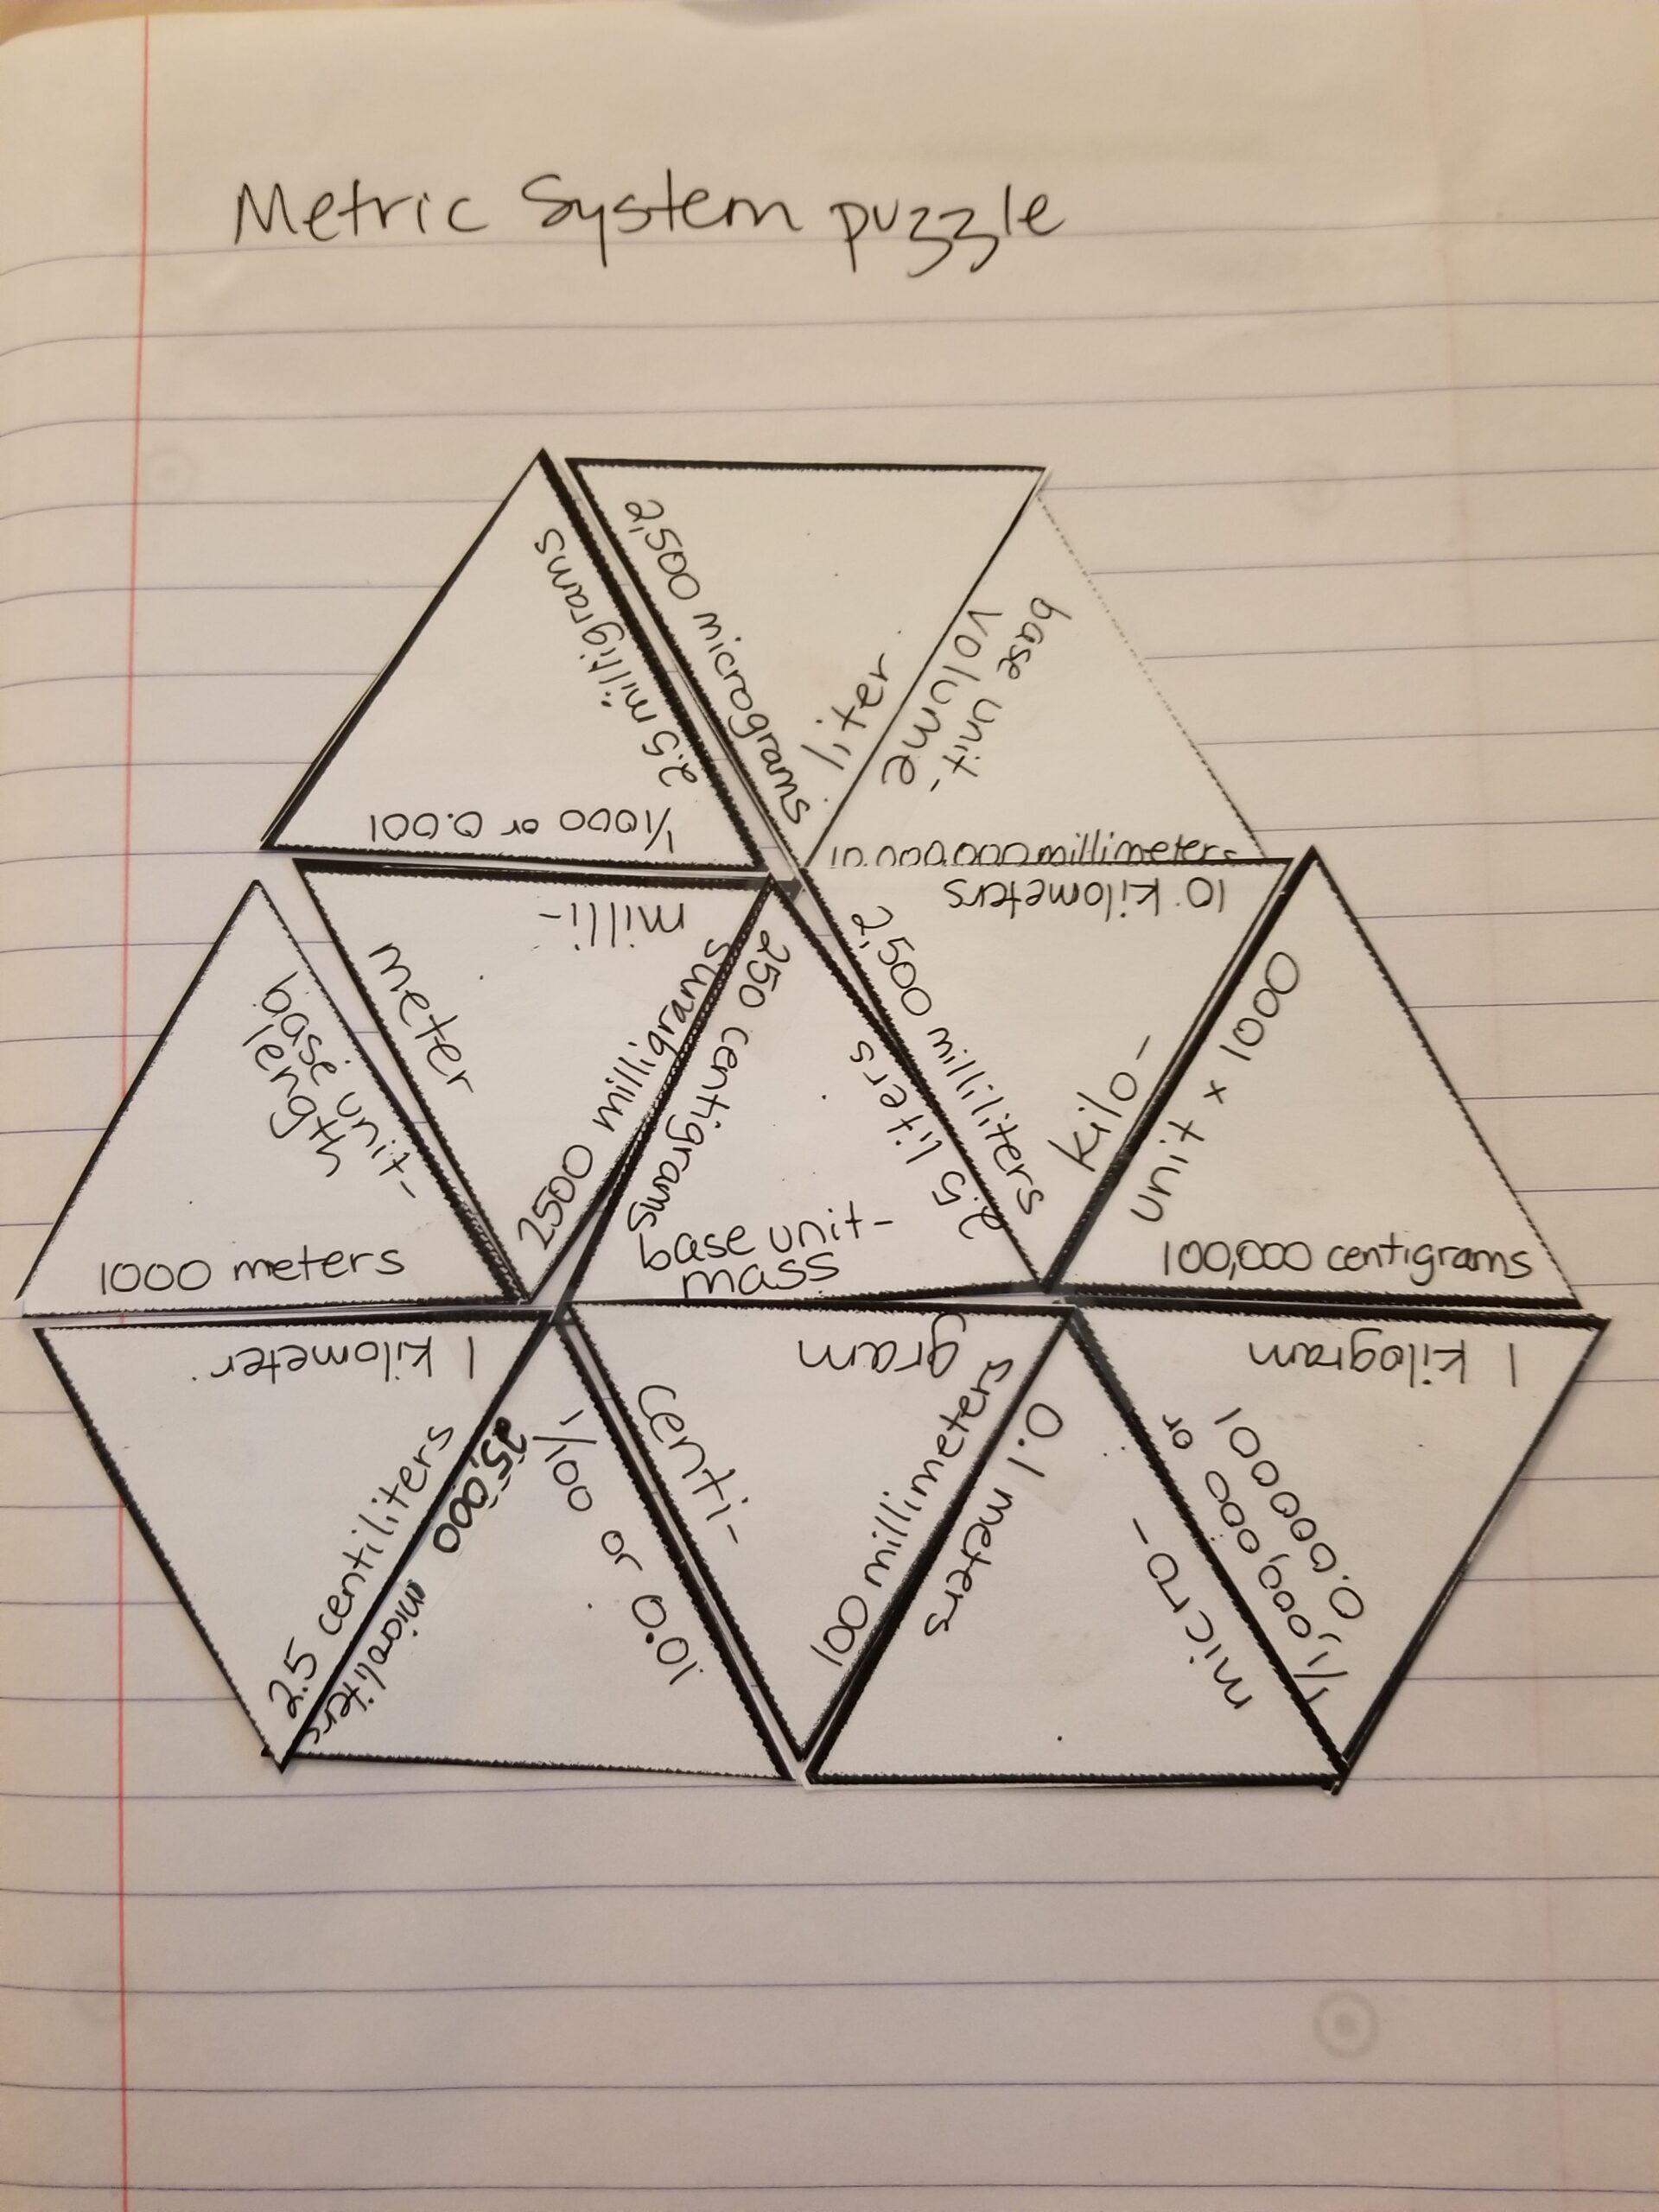 Metric System puzzle
2.5 milligrams
1/1000 or 0.001
2,500 micrograms
liter
base unit-
volume
10,000,000 millimeters
10 kilometers
2,500 milliliters
kilo-
unit x 1000
100,000 centigrams
base unit-
length
1000 meters
meter
milli-
2500 milligrams
250 centigrams
2.5 liters
base unit-
mass
1 kilometer
2.5 centiliters
25,000 microliters
1/100 or 0.01
centi-
gram
100 millimeters
0.1 meters
micro-
1 kilogram
1/1,000,000 or
0.000001